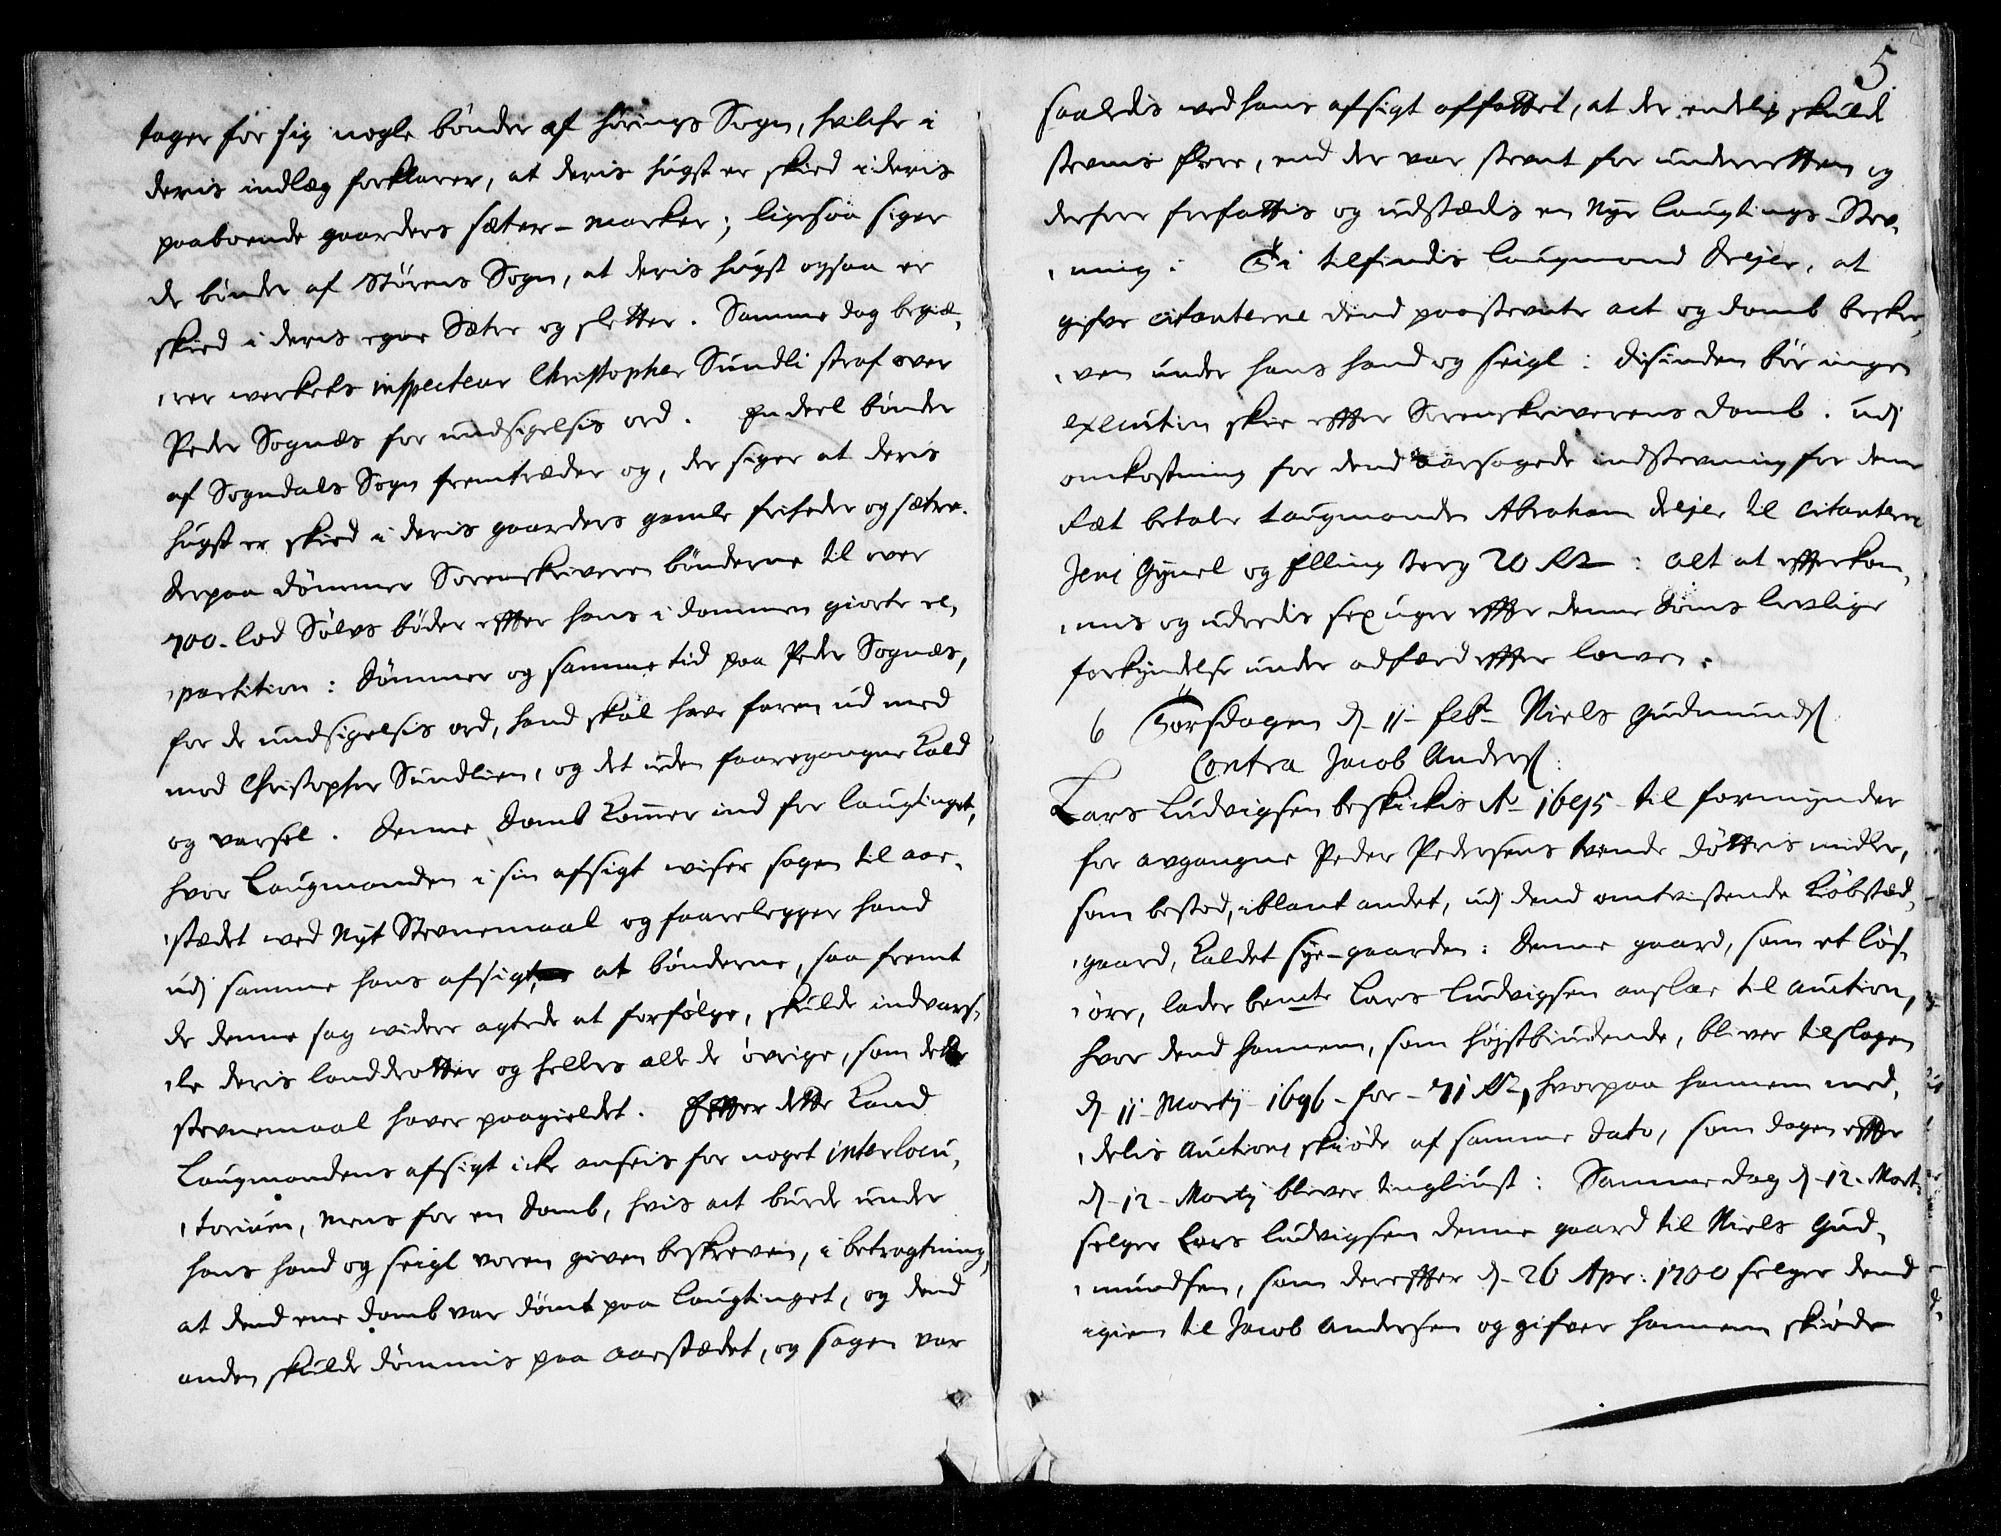 tager for sig nogle bønder af hørings Sogn, hvilche i
deris indlæg forklarer, at deris hugst er skied i deris
paaboende gaarders sæter-marker; ligesaa siger
de bønder af Størens Sogn, at deris hugst ogsaa er
skied i deris egne Sæter og sletter. Samme dag begiæ,
,rer werkets inspecteur Christopher Sundli straf over
Peder Sognæs for undsigelsis ord. En deel bønder
af Sogndals Sogn fremtræder og, der siger at deris
hugst er skied i deris gaarders gamle friheder og sætre.
Derpaa dømmer Sorenskriveren bønderne til over
700. lod Sølvs bøder effter hans i dommen giorte re,
,partition: Dømmer og samme tid paa Peder Sognæs,
for de undsigelsis ord, hand skal have faren ud med
mod Christopher Sundlien, og det uden foregangne Kald
og varsel. Denne Domb Kommer ind for laugtinget,
hvor Laugmanden i sin afsigt wiser sagen til aae,
,stædet med Nyt Stevnemaal og foarelegger hand
udj samme hans afsigt, at bønderne, saa fremt
de denne sag widere agtede at forfølge, skulde indvars,
,le deris landdrotter og hellers alle de øvrige, som dette
stevnemaal haver paagieldet. Effter dette Kand
Laugmandens afsigt icke ansees for noget interlocu,
,torium, mens for en domb, hvis act burde under
hans hand og seigl været given beskreven, i betragtning,
at dend ene domb var dømt paa laugtinget, og dend
anden skulde dømmis paa aaestædet, og sagen var
5
saaledis ved hans afsigt affattet, at der endelig skulde
stevnis flere, end der var stevnt for underretten og
derfore forfattis og udstædis en Nye laugtings Stev,
,ning: Thi tilfindis laugmand Dreyer, at
gifve citanterne dend paastevnte act og domb beskre,
,ven under hans hand og seigl: disinden bør ingen
execution skee effter Sorenskriverens domb. udj
omkostning for dend aarsagede indstevning for denne
Ræt betaler Laugmanden Abraham Dreyer til citanterne
Jens Gynel og Elling Berg 20 Rd: alt at effterkom,
,mis og udredis sex uger effter denne Doms lovlige
forkyndelse under adfærd effter lowen.
6 Torsdagen d. 11 feb. Niels Gudmunds.
Contra Jacob Anders.
Lars Ludvigsen beskickis Ao 1695 til formynder
for avgangne Peder Pedersens tvende døttris midler,
som bestod, iblant andet, udj dend omtvistende Kiøbstæd,
,gaard, Kaldet Sye-gaarden: Denne gaard, som et løs,
,øre, lader bemte Lars Ludvigsen anslaae til auction,
hvor dend hannem, som højstbiudende, bliver tilslagen
d. 11 Martij 1696 for 71 Rd, hvorpaa hannem med,
,delis auctions skiøde af samme dato, som dagen effter
d. 12 Martij bliver tingliust: Samme dag d. 12. Mart.
selger Lars Ludvigsen denne gaard til Niels Gud,
,mundsen, som dereffter d. 26 Apr: 1700 selger dend
igien til Jacob Andersen og gifver hannem skiøde